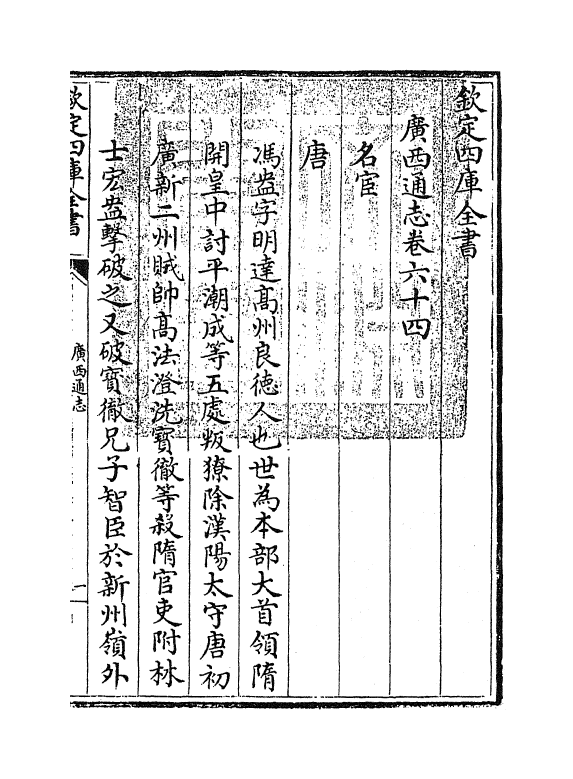 欽定四庫全書
廣西通志卷六十四
名宦
唐
馮盎字明達髙州良徳人也世為本部大首領隋
開皇中討平潮成等五處叛獠除漢陽太守唐初
廣新二州賊帥髙法澄洗寶徹等殺隋官吏附林
士宏盎擊破之又破寶徹兄子智臣於新州嶺外
欽定四庫全書
廣西通志
一